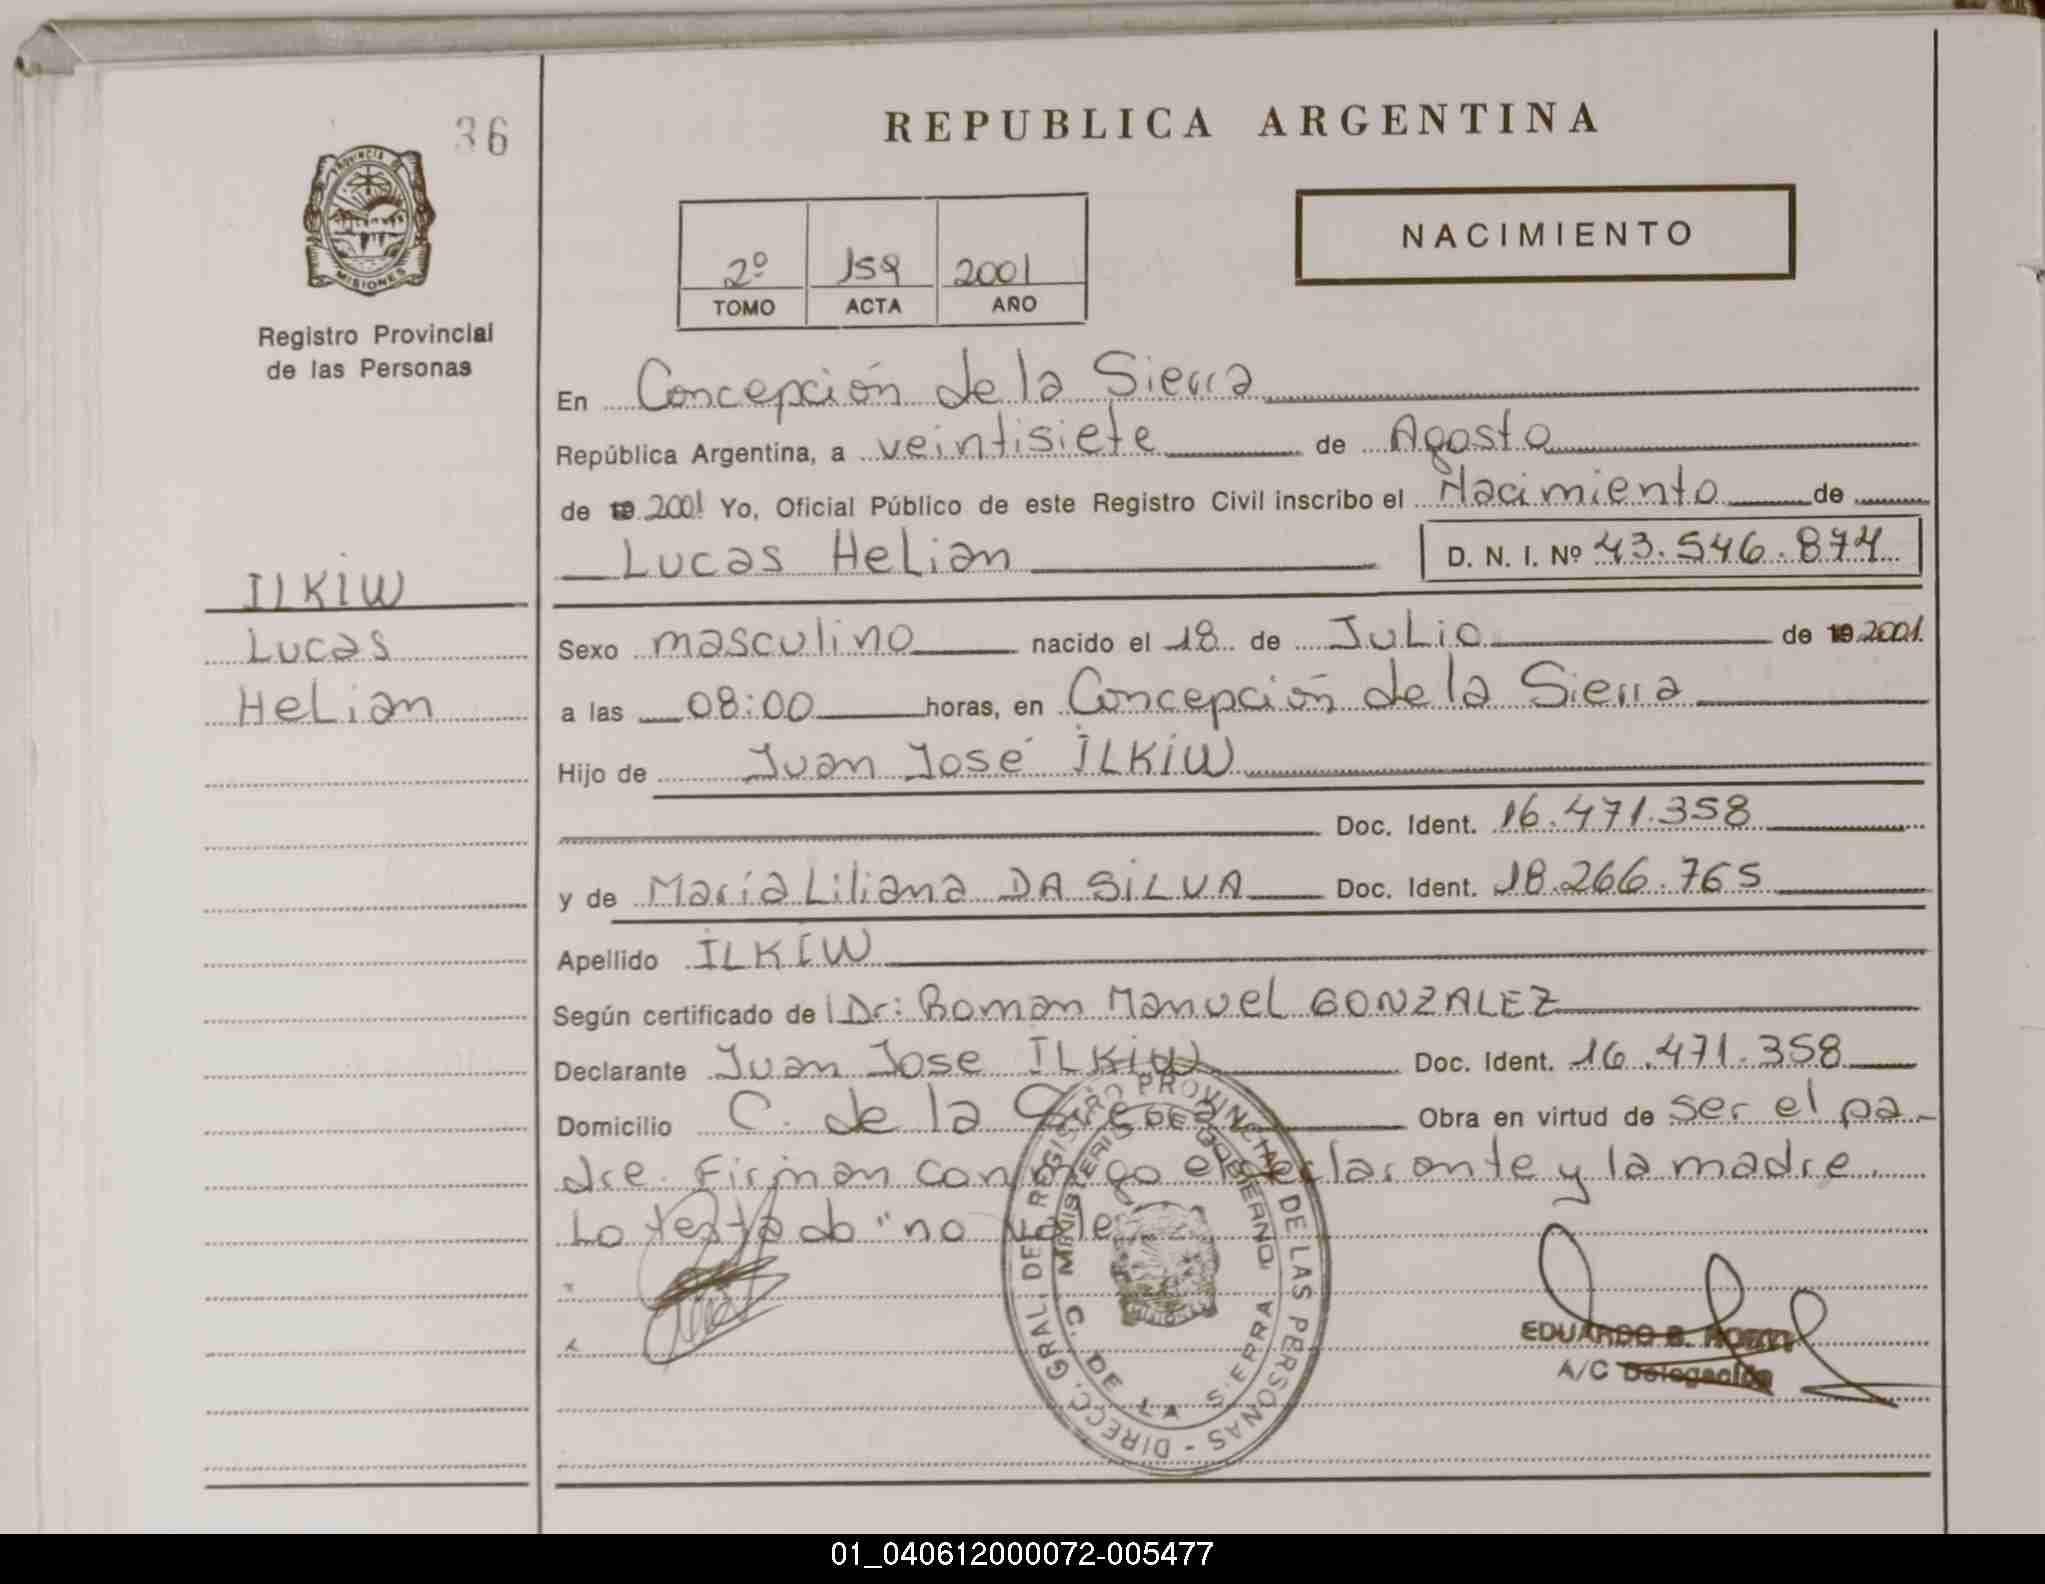 36
REPUBLICA ARGENTINA
PROVINCIA DE
MISIONES
NACIMIENTO
2º 159 2001
TOMO ACTA AÑO
Registro Provincial
de las Personas
En Concepción de la Sierra
República Argentina, a veintisiete de Agosto
de 19 2001 Yo, Oficial Público de este Registro Civil inscribo el Nacimiento de
Lucas Helian D. N. I. Nº 43.546.874
ILKIW
Lucas
Helian
Sexo masculino nacido el 18 de Julio de 19 2001.
a las 08:00 horas, en Concepción de la Sierra
Hijo de Juan José ILKIW
Doc. Ident. 16.471.358
y de María Liliana DA SILVA Doc. Ident. 18.266.765
Apellido ILKIW
Según certificado de Dr: Roman Manuel GONZALEZ
Declarante Juan Jose ILKIW Doc. Ident. 16.471.358
Domicilio C. de la Sierra Obra en virtud de ser el pa-
dre. Firman conmigo el declarante y la madre.
Lo testado "no vale
DIRECC. GRAL. DE REGISTRO PROVINCIAL DE LAS PERSONAS -
MINISTERIO DE GOBIERNO
C. DE LA SIERRA
EDUARDO B.
A/C Delegación
01_040612000072-005477